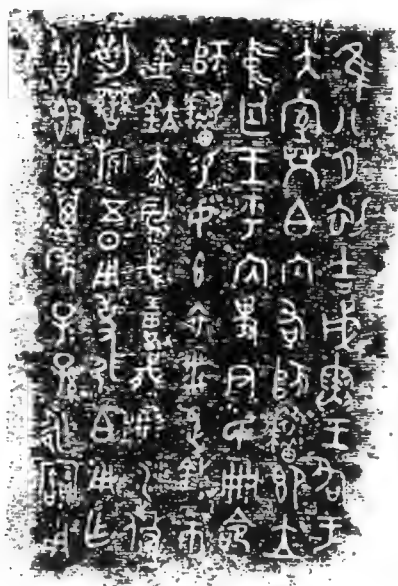 隹八月初吉戊寅王各于
大室榮白內右師耤即立
中廷王乎內史尹氏冊命
師耤易女玄衣黹屯叔巿
金鈧赤舄戈琱戟彤沙攸
勒鑾旂五日用事弭白用乍
尊簋其萬年子孫永寶用